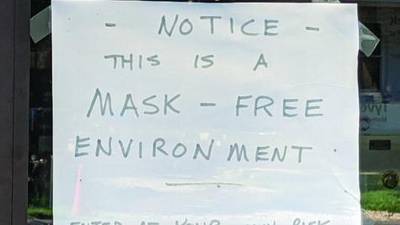 - NOTICE -
THIS IS A
MASK - FREE
ENVIRONMENT
ENTER AT YOUR OWN RISK